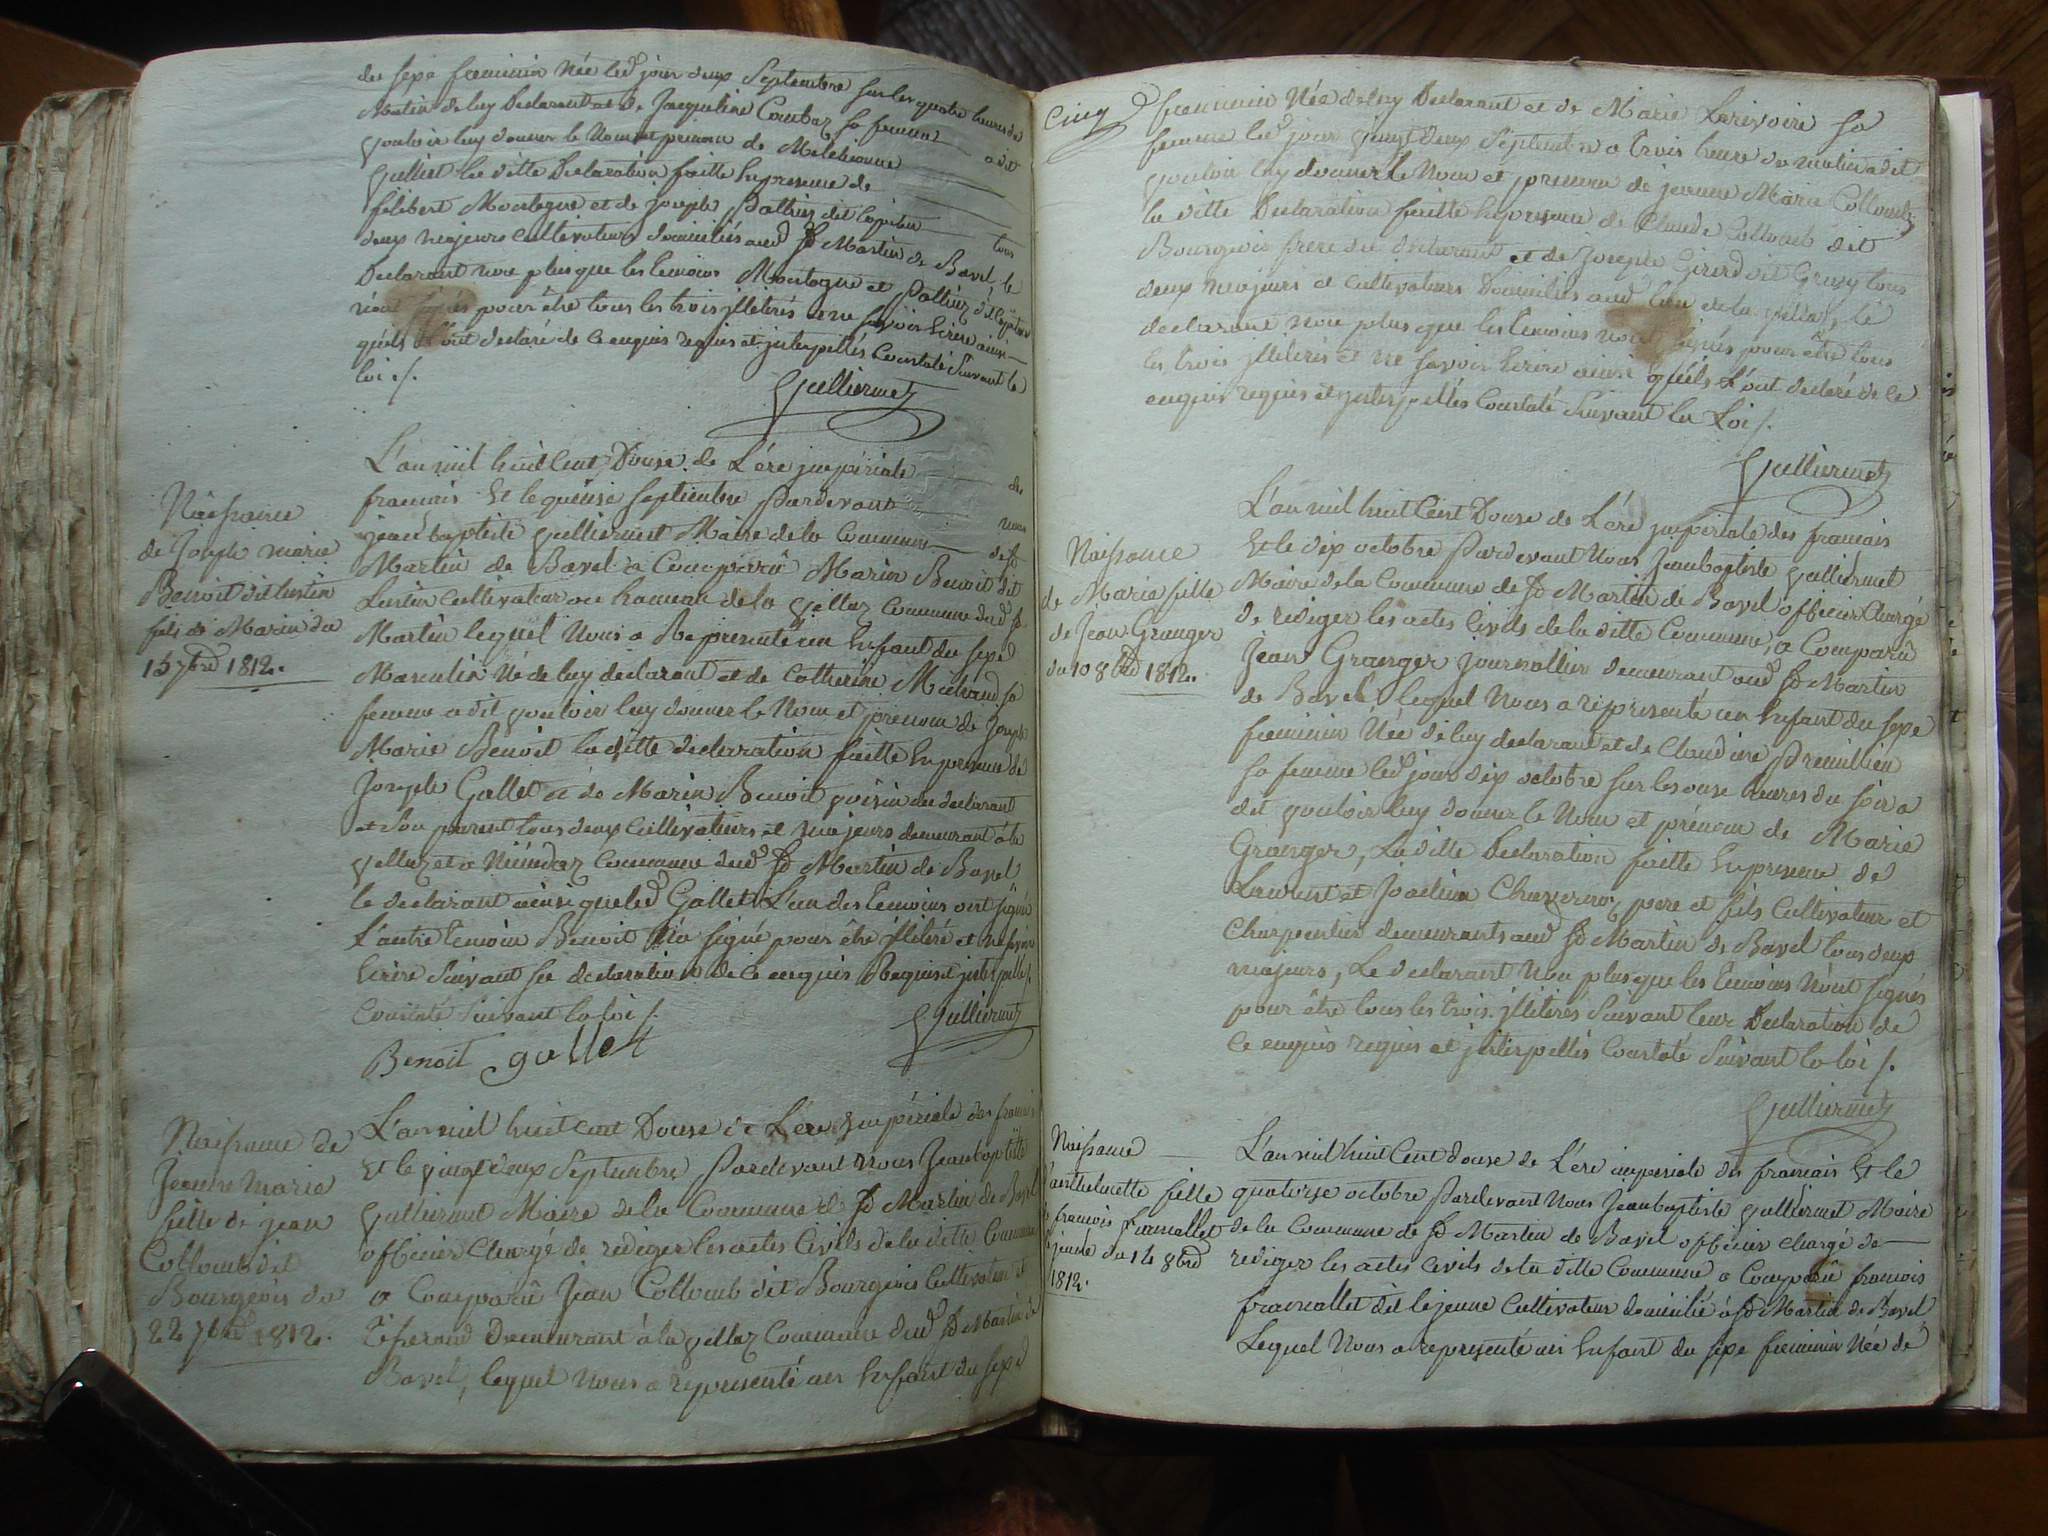 du sexe feminin Née led jour deux Septembre sur les quatre heures du
Matin de luy Declarant et de Jacqueline Combaz sa femme a dit
vouloir luy donner le Nom et prenom de Melchionne
Gulliet la ditte Declaration faitte En presence de
filibert Montagne et de joseph dit tous
deux majeurs cultivateurs domiciliés aud St Martin de Bavel, le
Declarant non plus que les temoins Montagne et
n'ont signés pour être tous les trois jlliterés et ne savoir Ecrire ainsi
qu'ils l'ont declaré de ce enquis requis et jnterpellés Constaté Suivant la
loi ./.
Gulliermet
L'an mil huit Cent Douse de L'ére jmpériale des
francais Et le quinse septembre Pardevant nous
jean baptiste Gulliermet Maire de la Commune de St
Martin de Bavel a Comparû Marin Benoit dit
Lustin Cultivateur au hameau de la Vellaz Commune dud St
Martin lequel Nous a Representé un Enfant du sexe
Masculin Né de luy declarant et de Catherine Michaud sa
femme a dit vouloir luy donner le Nom et prenom de Joseph
Marie Benoit la ditte declarration faitte En presence de
Joseph Gallet et de Marin Benoit voisin du declarant
et son parent tous deux Cultivateurs et majeurs demeurant à la
Vellaz et a Commune dud St Martin de Bavel
le declarant ainsi que led Gallet L'un des temoins ont signé
L'autre temoin Benoit N'a signé pour être jlliteré et ne savoir
Ecrire Suivant sa declaration de ce enquis Requis et jnterpellé
Constaté Suivant la loi ./.
Gulliermet
Benoit gallet
Naissance
de Joseph marie
Benoit dit lustin
fils de Marin du
15 7bre 1812.
L'an mil huit cent Douse de L'ére Impériale des francais
Et le vingt deux Septembre, Pardevant nous Jean baptiste
Gulliermet Maire de la Commune de St Martin de Bavel
officier Chargé de rediger les actes Civils de la ditte Commune
a Comparû Jean Collomb dit Bourgeois Cultivateur et
Tisserand Demeurant à la Vellaz Commune dud St Martin de
Bavel, lequel nous a representé un Enfant du sexe
Naissance de
Jeanne Marie
fille de jean
Collomb dit
Bourgeois du
22 7bre 1812.
Cinq
feminin Née de luy Declarant et de Marie Larivoire sa
femme led jour vingt Deux Septembre a trois heure du matin a dit
vouloir luy donner le Nom et prenom de jeanne Marie Collomb
la ditte Declaration faitte En presence de Claude Collomb dit
Bourgeois frere du declarant et de Joseph Girerd dit Gruzy tous
deux majeurs et cultivateurs Domiciliés aud lieu de la Vellaz, le
declarant non plus que les temoins n'ont signés pour être tous
les trois jlliterés et ne savoir Ecrire ainsi qu'ils L'ont declaré de ce
enquis requis et jnterpellés Constaté Suivant la Loi ./.
Gulliermet
L'an mil huit Cent Douse de L'ére jmperiale des francais
Et le dix octobre Pardevant Nous Jean baptiste Gulliermet
Maire de la Commune de St Martin de Bavel officier Chargé
de rediger les actes Civils de la ditte Commune, a Comparû
Jean Granger Journallier demeurant aud St Martin
de Bavel lequel Nous a representé un Enfant du sexe
feminin Née de luy declarant et de Claudine Premillieu
sa femme led jour dix octobre sur les onse heures du soir a
dit vouloir luy donner le Nom et prénom de Marie
Granger, La ditte Declaration faitte En presence de
Laurent et Joachim Charvernoz pere et fils Cultivateur et
Charpentier demeurants aud St Martin de Bavel tous deux
majeurs, Le declarant Non plus que les temoins N'ont signés
pour être tous les trois jlliterés Suivant leur Declaration de
Ce enquis requis et jnterpellés Constaté Suivant la loi ./.
Gulliermet
Naissance
de Marie fille
de Jean Granger
du 10 8bre 1812.
L'an mil huit Cent douse de L'ére imperiale des francais Et le
quatorze octobre Pardevant Nous Jean baptiste Gulliermet Maire
de la Commune de St Martin de Bavel officier chargé de
rediger les actes Civils de la ditte Commune a Comparû francois
framallet dit le jeune Cultivateur domicilié à St Martin de Bavel
Lequel Nous a representé un Enfant du sexe feminin Née de
Naissance
d'anthelmette fille
francois framallet
le jeune du 14 8bre
1812.